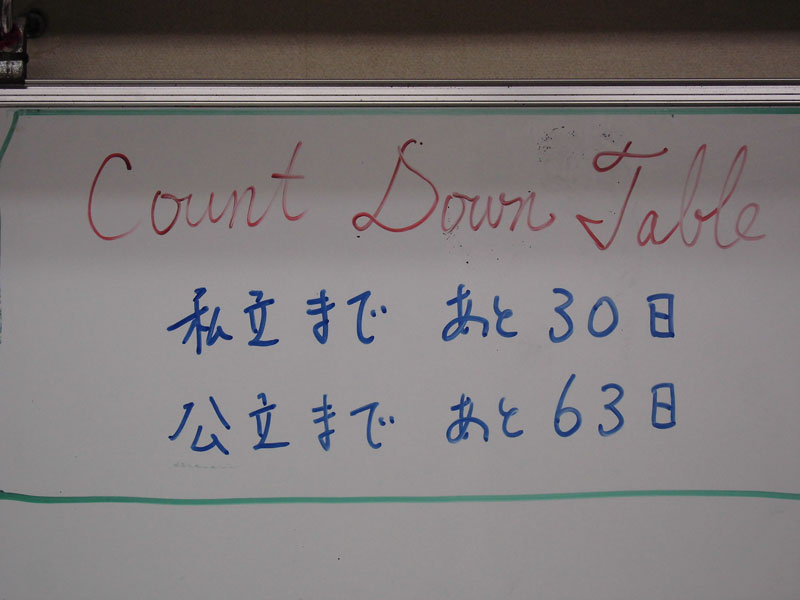 Count Down Table
私立まで あと30日
公立まで あと63日